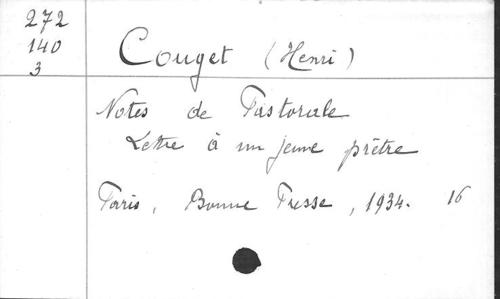 272
140
3
Couget (Henri)
Notes de Pastorale
Lettre à un jeune prêtre
Paris, Bonne Presse, 1934. 16